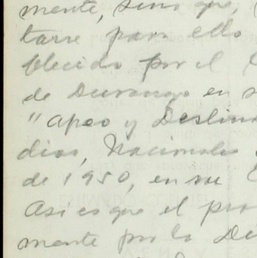 mente, sino que,
tarse para ello
blecido por el C
de Durango en s
"Apeo y Deslin
dios, Nacionales
de 1950, en su C
Así es que el pro
mente por la De